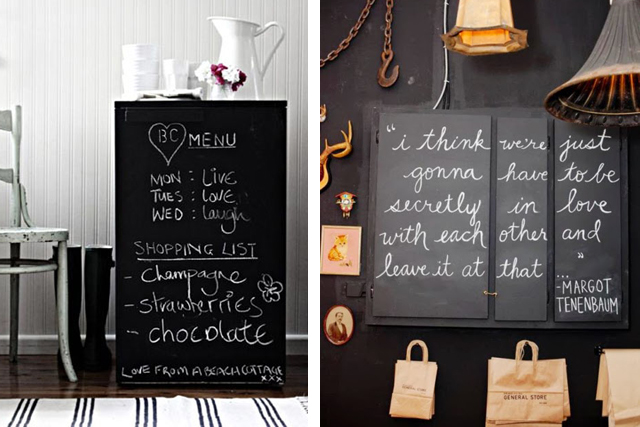 BC
MENU
MON : Live
TUES : love
WED : laugh
SHOPPING LIST
- champagne
- strawberries
- chocolate
LOVE FROM A BEACH COTTAGE
xxx
"i think we're just
gonna have to be
secretly in love
with each other and
leave it at that
..."
-MARGOT
TENENBAUM
GENERAL STORE